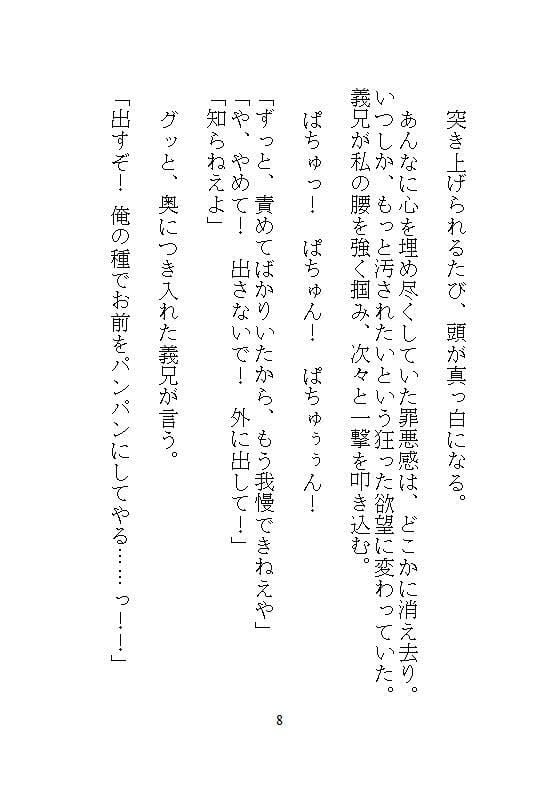 突き上げられるたび、頭が真っ白になる。
あんなに心を埋め尽くしていた罪悪感は、どこかに消え去り。
いつしか、もっと汚されたいという狂った欲望に変わっていた。
義兄が私の腰を強く掴み、次々と一撃を叩き込む。
ぱちゅっ！　ぱちゅん！　ぱちゅぅぅん！
「ずっと、責めてばかりいたから、もう我慢できねえや」
「や、やめて！　出さないで！　外に出して！」
「知らねえよ」
グッと、奥につき入れた義兄が言う。
「出すぞ！　俺の種でお前をパンパンにしてやる……っ！！」
8